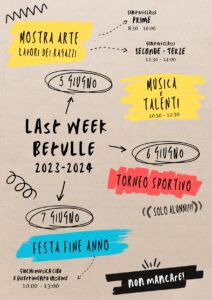 MOSTRA ARTE
LAVORI DEI RAGAZZI
PRIME
8:30 - 10:00
SECONDE - TERZE
12:30 - 14:00
5 GIUGNO
MUSICA
E
TALENTI
10:30 - 12:30
LAST WEEK
BETULLE
2023-2024
6 GIUGNO
TORNEO SPORTIVO
((SOLO ALUNNI!!!))
7 GIUGNO
FESTA FINE ANNO
GIOCHI MUSICA CIBO
E DIVERTIMENTO INSIEME
10:00 - 13:00
NON MANCARE!